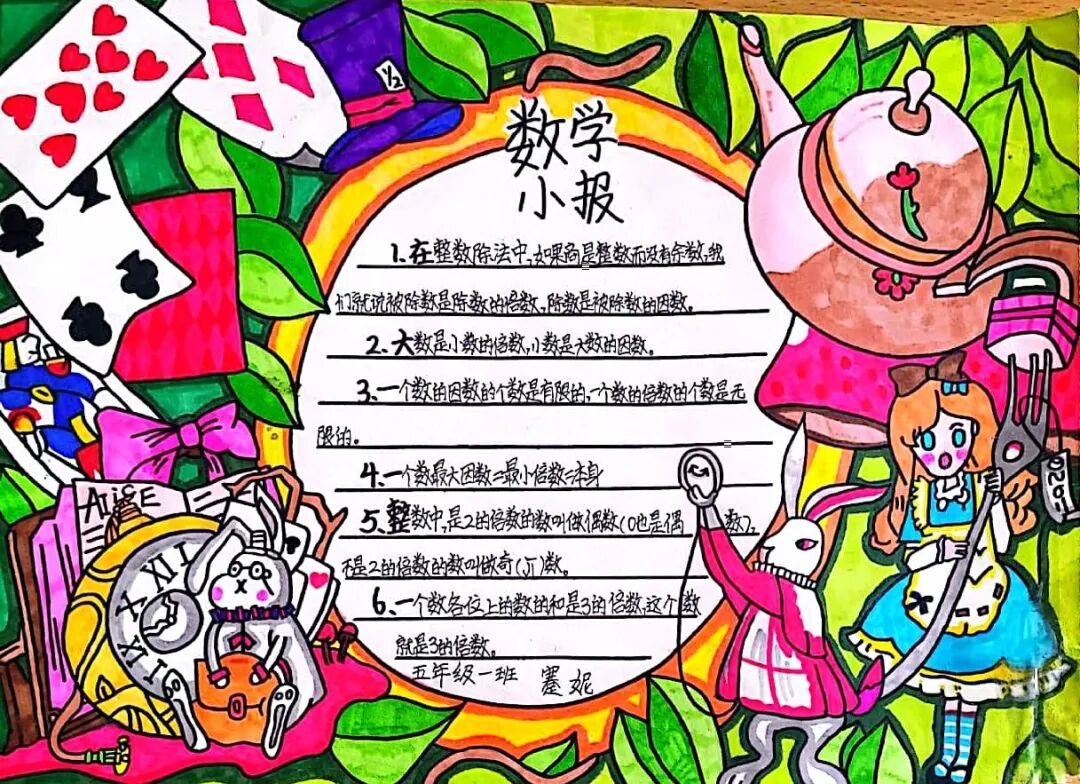 数学
小报
1.在整数除法中,如果商是整数而没有余数,我
们就说被除数是除数的倍数,除数是被除数的因数。
2.大数是小数的倍数,小数是大数的因数。
3.一个数的因数的个数是有限的,一个数的倍数的个数是无
限的。
4.一个数最大因数=最小倍数=本身
5.整数中,是2的倍数的数叫做偶数(0也是偶数),
不是2的倍数的数叫做奇(jī)数。
6.一个数各位上的数的和是3的倍数,这个数
就是3的倍数。
五年级一班 蹇妮
1/2
ALiCE
XII
XI
X
IX